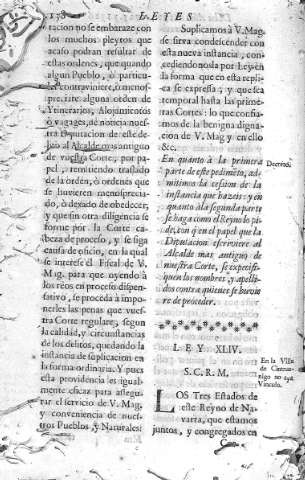 178 LEYES
tacion no se embaraze con
los muchos pleytos que
acaso podran resultar de
estas ordenes, que quando
algun Pueblo, ò particu-
lar contraviniere, ò menos-
preciare alguna orden de
Ytinerarios, Alojamientos
ò vagages, de noticia nues-
tra Diputacion de este de-
lito al Alcalde mas antiguo
de vuestra Corte, por pa-
pel, remitiendo traslado
de la orden, ò ordenes que
se huvieren menosprecia-
do, ò dexado de obedecer,
y que sin otra diligencia se
forme por la Corte ca-
beza de proceso, y se siga
causa de oficio, en la qual
se interese el Fiscal de V.
Mag. para que oyendo à
los réos en proceso dispen-
sativo, se proceda à impo-
nerles las penas que vues-
tra Corte regulare, segun
la calidad, y circunstancias
de los delitos, quedando la
instancia de suplicacion en
la forma ordinaria. Y pues
esta providencia es igual-
mente eficaz para assegu-
rar el servicio de V. Mag.
y conveniencia de nues-
tros Pueblos, y Naturales:
Suplicamos à V. Mag.
se sirva condescender con
esta nueva instancia, con-
cediendonosla por Ley en
la forma que en esta repli-
ca se expressa, y que sea
temporal hasta las prime-
ras Cortes: lo que confia-
mos de la benigna digna-
cion de V. Mag. y en ello
&c.
En quanto à la primera
parte de este pedimento, ad-
mitimos la cesion de la
instancia que hazeis: y en
quanto à la segunda parte
se haga como el Reyno lo pi-
de, con q̃ en el papel que la
Diputacion escriviere al
Alcalde mas antiguo de
nuestra Corte, se especifi-
quen los nombres, y apelli-
dos contra quienes se huvie
re de proceder.
Decreto.
LEY XLIV.
S. C. R. M.
En la Villa
de Cintrue-
nigo no aya
Vinculo.
LOS Tres Estados de
este Reyno de Na-
varra, que estamos
juntos, y congregados en